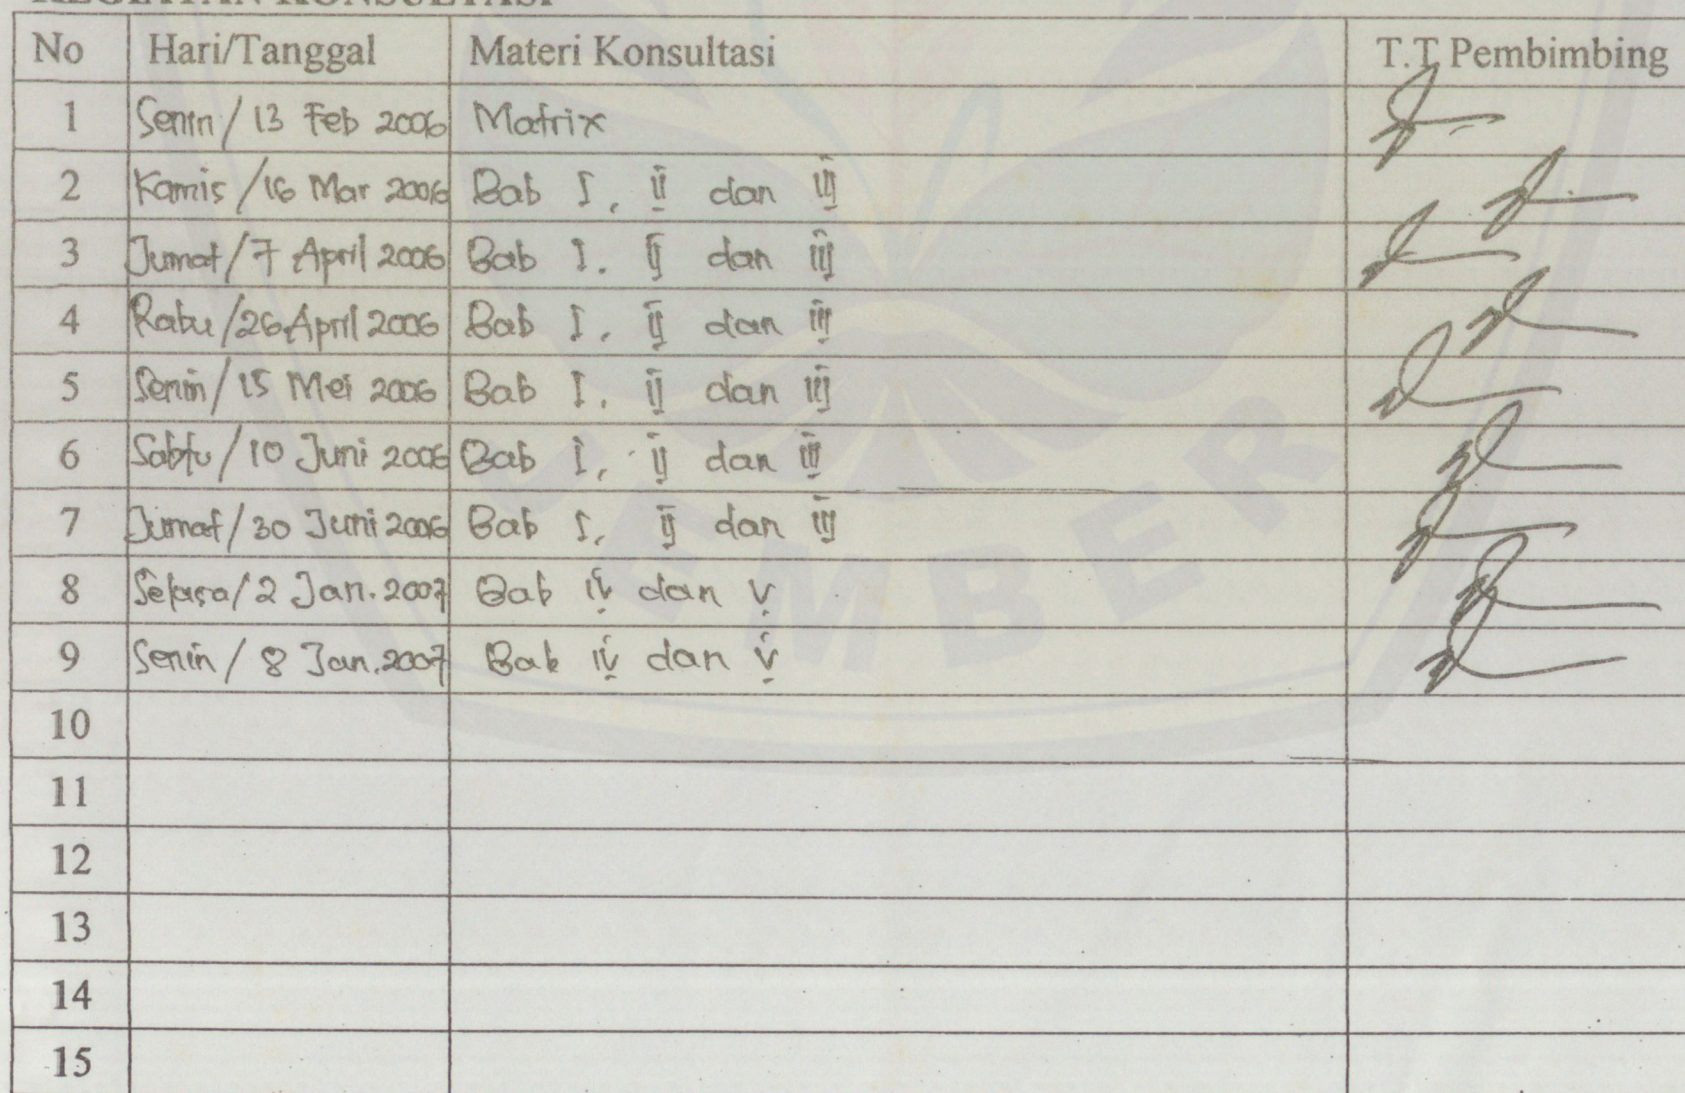 KEGIATAN KONSULTASI
No Hari/Tanggal Materi Konsultasi T.T Pembimbing
1 Senin / 13 Feb 2006 Matrix
2 Kamis / 16 Mar 2006 Bab I, II dan III
3 Jumat / 7 April 2006 Bab I, II dan III
4 Rabu / 26 April 2006 Bab I, II dan III
5 Senin / 15 Mei 2006 Bab I, II dan III
6 Sabtu / 10 Juni 2006 Bab I, II dan III
7 Jumat / 30 Juni 2006 Bab I, II dan III
8 Selasa / 2 Jan. 2007 Bab IV dan V
9 Senin / 8 Jan. 2007 Bab IV dan V
10
11
12
13
14
15
JEMBER